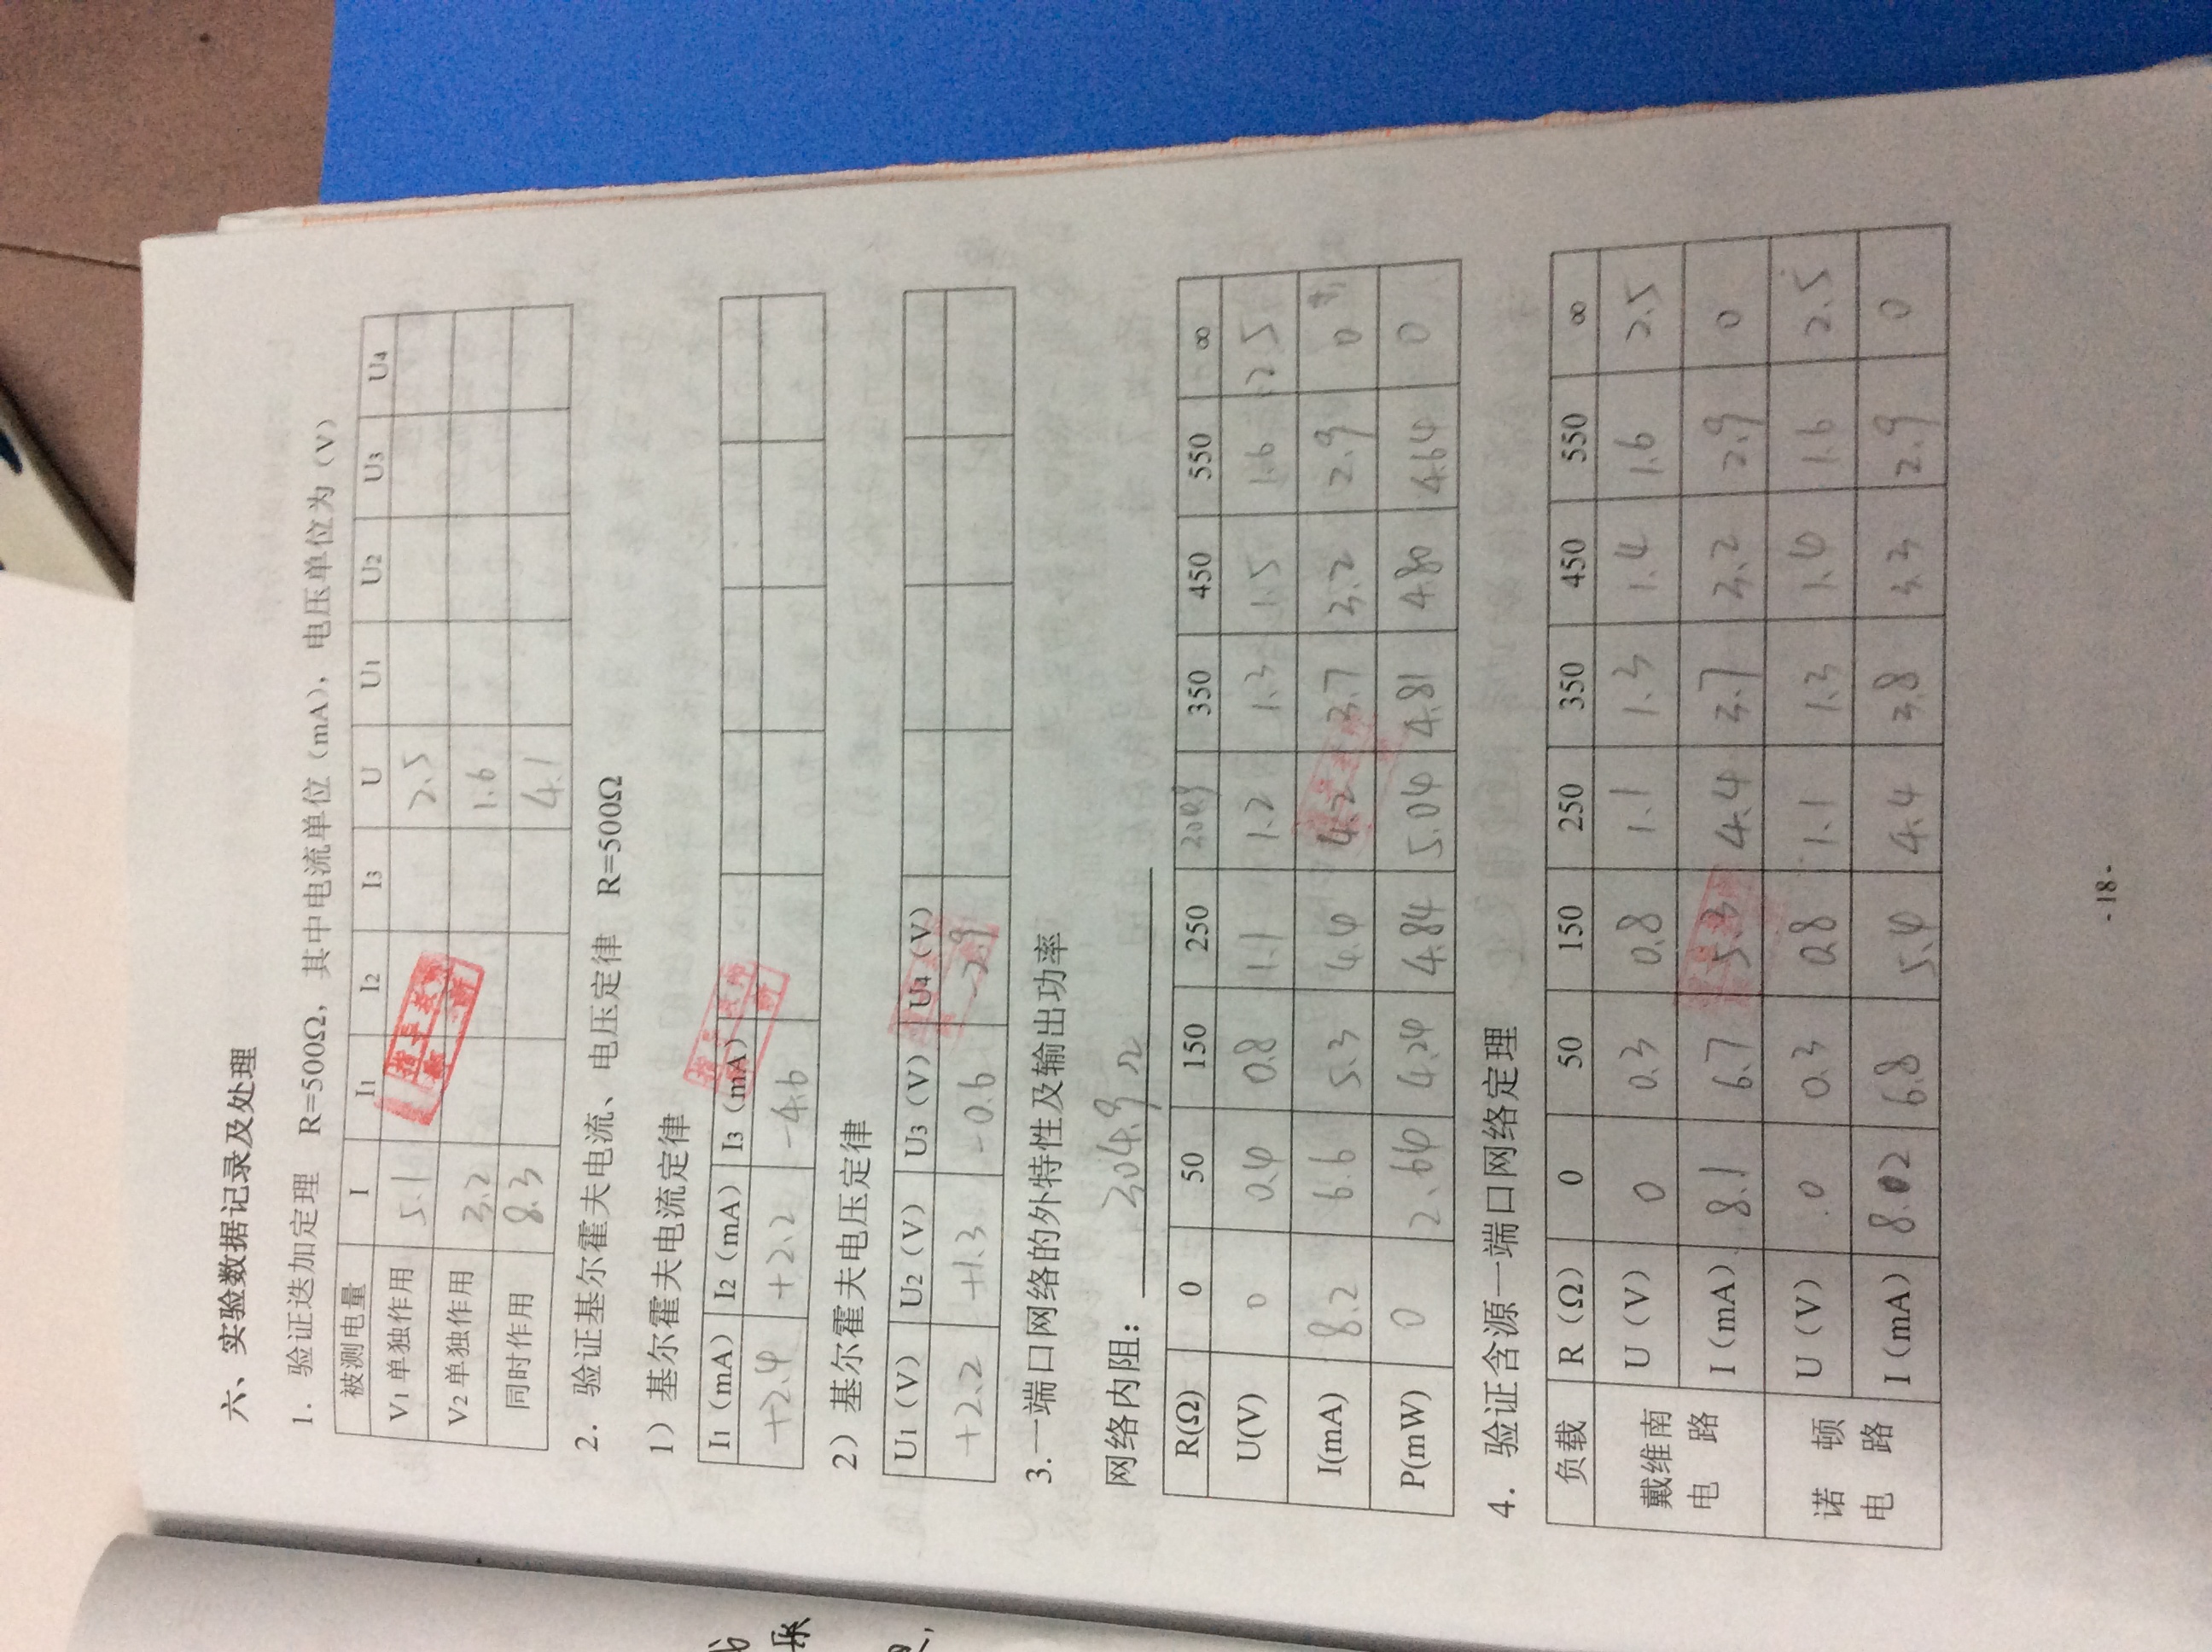 六、实验数据记录及处理
1. 验证迭加定理 R=500Ω，其中电流单位（mA），电压单位为（V）
被测电量 I I1 I2 I3 U U1 U2 U3 U4
V1 单独作用 5.1 2.5
V2 单独作用 3.2 1.6
同时作用 8.3 4.1
2. 验证基尔霍夫电流、电压定律 R=500Ω
1）基尔霍夫电流定律
I1（mA） I2（mA） I3（mA）
+2.4 +2.2 -4.6
2）基尔霍夫电压定律
U1（V） U2（V） U3（V） U4（V）
+2.2 +1.3 -0.6 -2.9
3.一端口网络的外特性及输出功率
网络内阻： 304.9Ω
R(Ω) 0 50 150 250 350 450 550 ∞
U(V) 0 0.4 0.8 1.1 1.2 1.3 1.5 1.6 2.5
I(mA) 8.2 6.6 5.3 4.4 4.2 3.7 3.2 2.9 0
P(mW) 0 2.64 4.24 4.84 5.04 4.81 4.80 4.64 0
4. 验证含源一端口网络定理
负载 R（Ω） 0 50 150 250 350 450 550 ∞
戴维南电路 U（V） 0 0.3 0.8 1.1 1.3 1.4 1.6 2.5
I（mA） 8.1 6.7 5.3 4.4 3.7 3.2 2.9 0
诺顿电路 U（V） 0 0.3 0.8 1.1 1.3 1.4 1.6 2.5
I（mA） 8.02 6.8 5.4 4.4 3.8 3.3 2.9 0
- 18 -